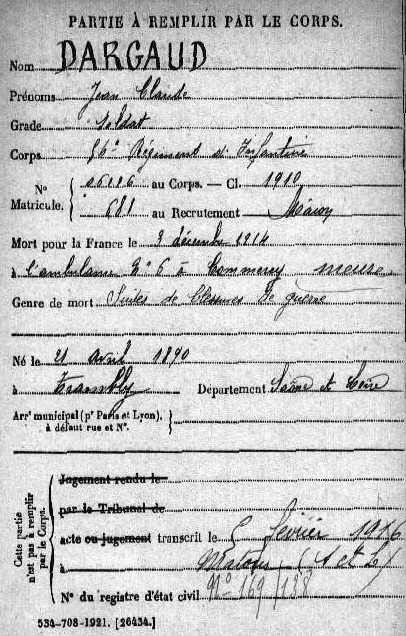 PARTIE À REMPLIR PAR LE CORPS.
Nom DARGAUD
Prénoms Jean Claude
Grade Soldat
Corps Régiment d'Infanterie
N° Matricule. au Corps. — Cl. 1910
681 au Recrutement Mâcon
Mort pour la France le 3 décembre 1914
à l'ambulance N° 6 à Commercy meuse
Genre de mort Suites de blessures de guerre
Né le 21 avril 1890
à Trambly Département Saône et Loire
Arrt municipal (pr Paris et Lyon), à défaut rue et N°.
Cette partie n'est pas à remplir par le Corps.
Jugement rendu le
par le Tribunal de
acte ou jugement transcrit le 5 février 1916
à Matour (S et L)
N° du registre d'état civil N° 169/138
534-708-1921. [26434.]